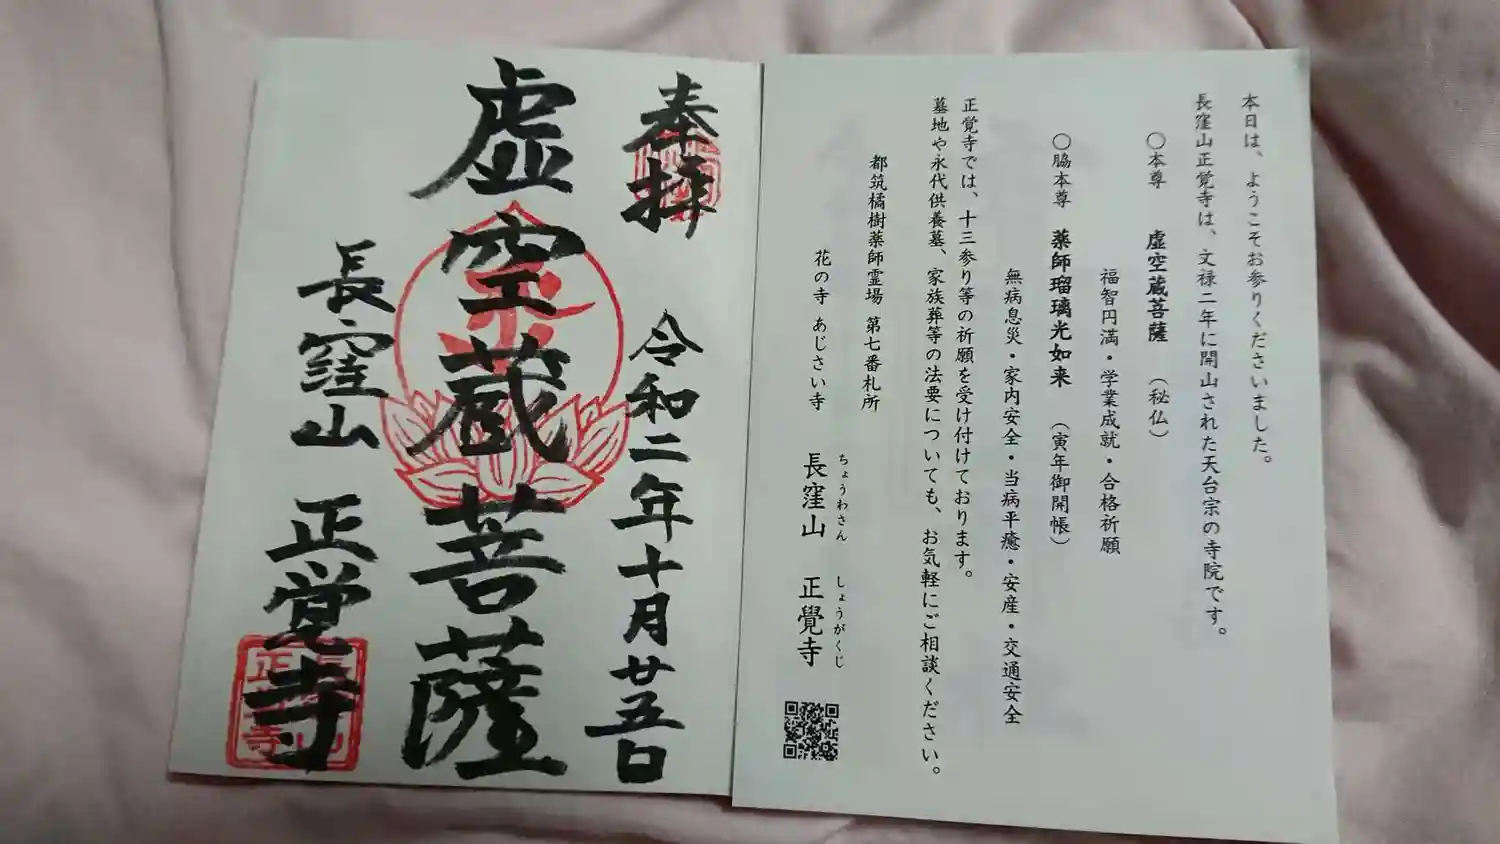 本日は、ようこそお参りくださいました。
長窪山正覚寺は、文禄二年に開山された天台宗の寺院です。
〇本尊 虚空蔵菩薩（秘仏）
福智円満・学業成就・合格祈願
〇脇本尊 薬師瑠璃光如来（寅年御開帳）
無病息災・家内安全・当病平癒・安産・交通安全
正覚寺では、十三参り等の祈願を受け付けております。
墓地や永代供養墓、家族葬等の法要についても、お気軽にご相談ください。
都筑橘樹薬師霊場 第七番札所
花の寺 あじさい寺
ちょうわさん しょうがくじ
長窪山 正覺寺
奉拝
令和二年十月廿五日
虚空蔵菩薩
長窪山 正覚寺